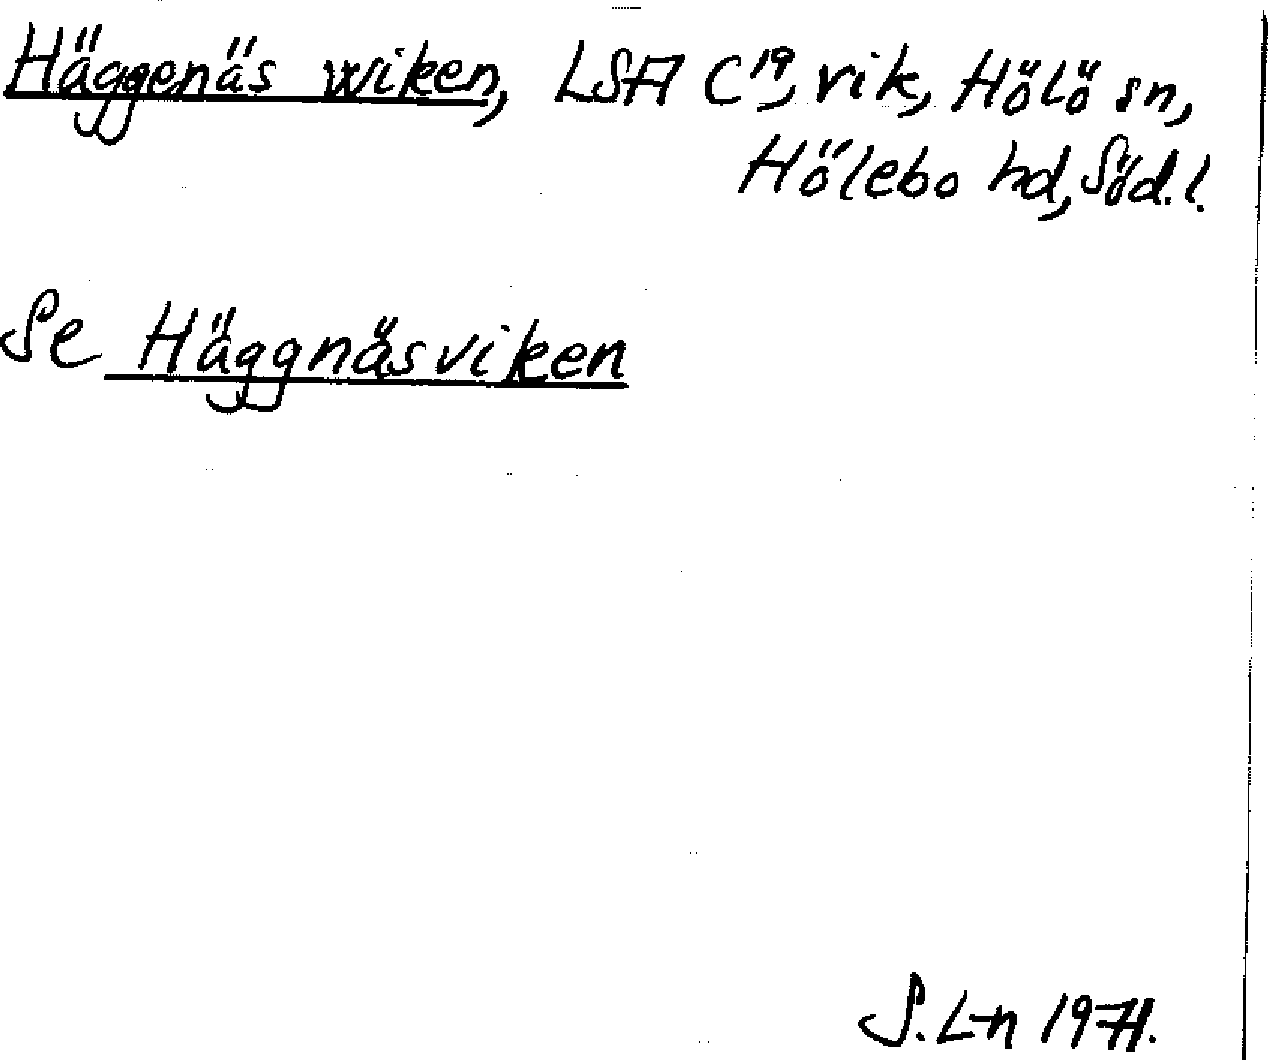 Häggenäs wiken, LSA C¹⁹, vik, Hölö sn,
Hölebo hd, Söd. l.
Se Häggnäsviken
S. L-n 1971.